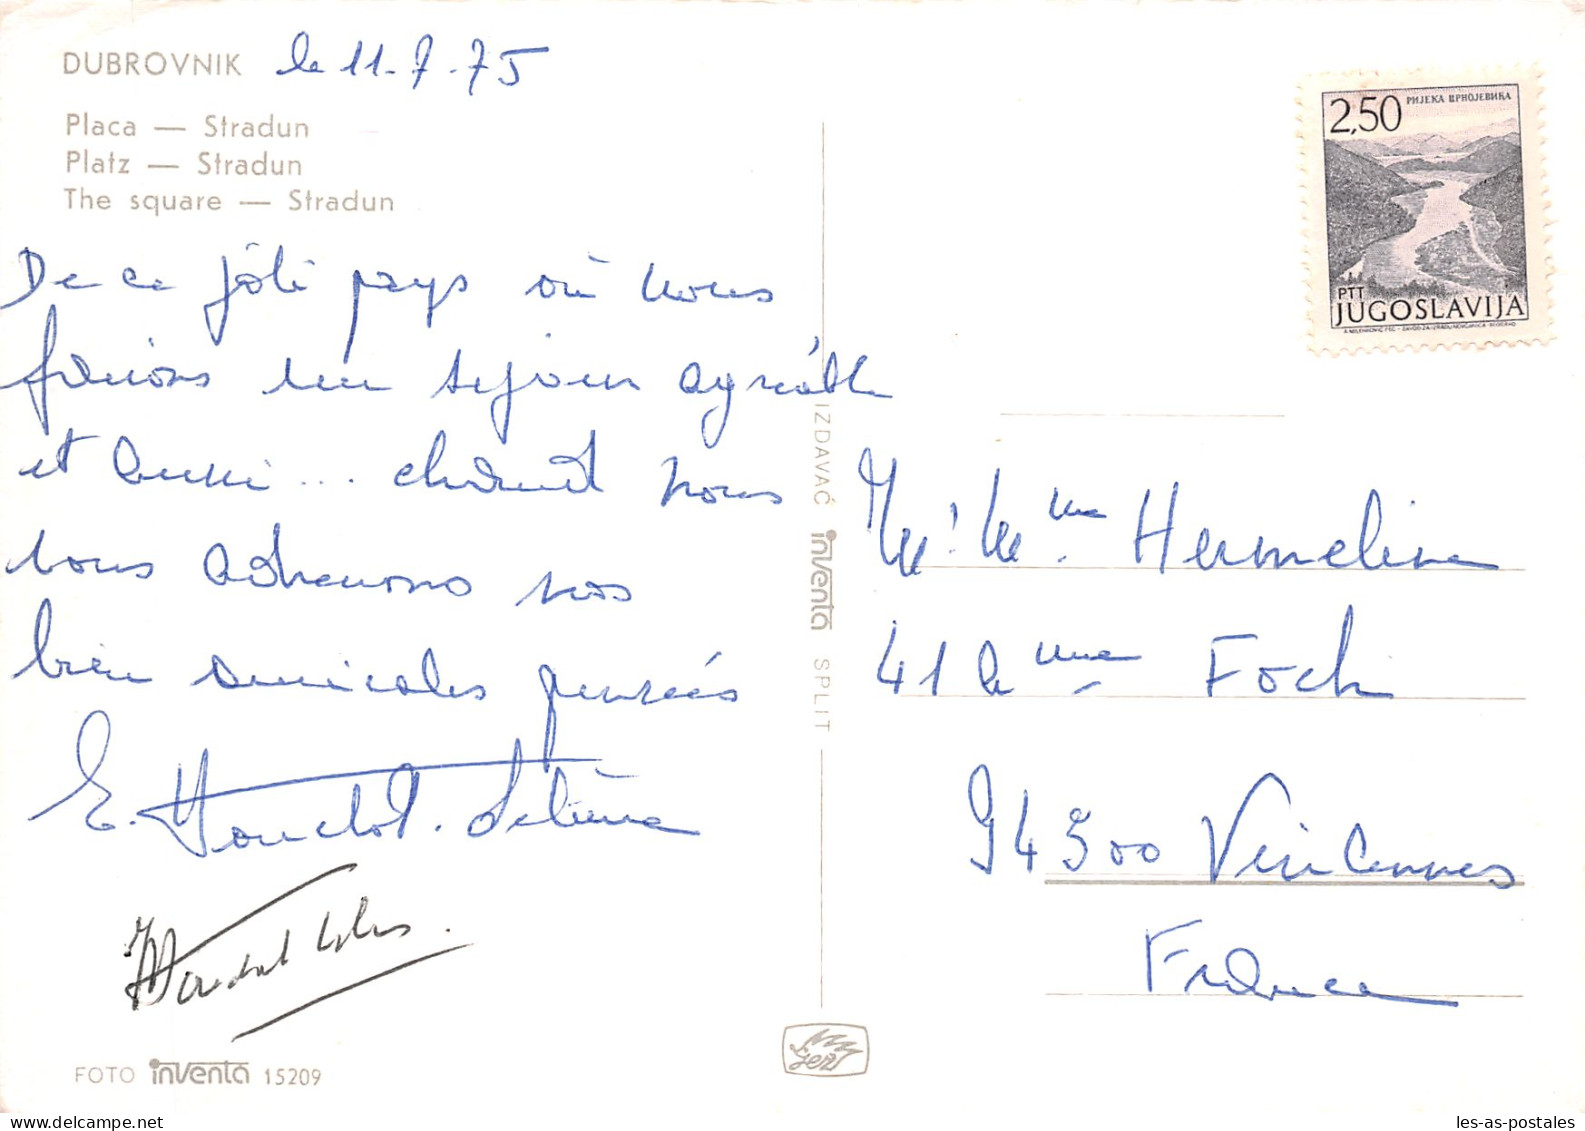 DUBROVNIK le 11-7-75
Placa — Stradun
Platz — Stradun
The square — Stradun
De ce joli pays où nous
faisons un séjour agréable
et aussi... chaud nous
vous adressons nos
bien amicales pensées
E.
2,50 РИЈЕКА ЦРНОЈЕВИЋА
PTT
JUGOSLAVIJA
IZDAVAČ inventa SPLIT
M. Mme Hermeline
41 Foch
94300 Vincennes
France
FOTO inventa 15209
les-as-postales